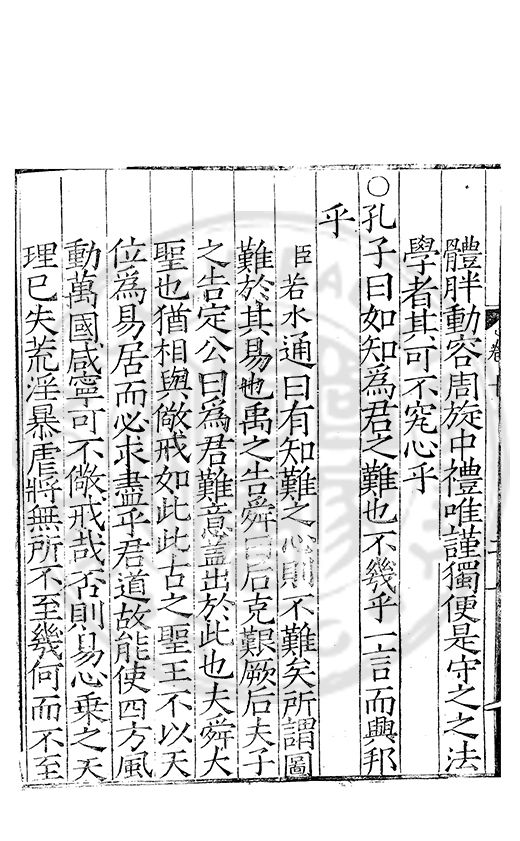 體胖動容周旋中禮唯謹獨便是守之之法
學者其可不究心乎
○孔子曰如知爲君之難也不幾乎一言而興邦
乎
臣若水通曰有知難之心則不難矣所謂圖
難於其易也禹之告舜曰后克艱厥后夫子
之告定公曰爲君難意蓋出於此也夫舜大
聖也猶相與儆戒如此此古之聖王不以天
位爲易居而必求盡乎君道故能使四方風
動萬國咸寧可不儆戒哉否則易心乘之天
理已失荒淫暴虐將無所不至幾何而不至